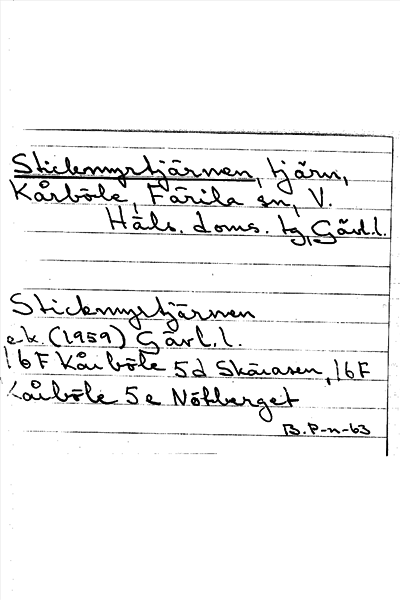 Stickmyrtjärnen, tjärn,
Kårböle, Färila sn, V.
Häls. doms. tg, Gävl.l.
Stickmyrtjärnen
e.k. (1959) Gävl.l.
16F Kårböle 5d Skäråsen, 16F
Kårböle 5e Nötberget
B.P-n-63